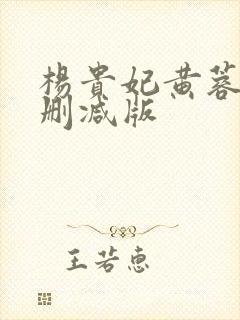 楊貴妃黄蓉
删减版
王若惠